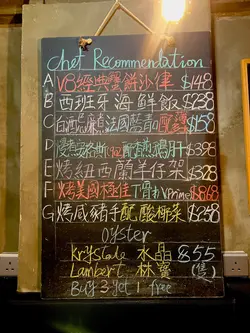 Chef Recommendation
A V8經典蟹餅沙律 $148
B 西班牙海鮮飯 $238
C 白酒忌廉煮法國藍青口 $158
D 慢煮安格斯 $398
E 烤紐西蘭羊仔架 $328
F 烤美國極佳T骨扒 Prime $868
G 烤咸豬手配酸椰菜 $258
Oyster
Krystale 水晶 $55
Lambert 林寶 (隻)
Buy 3 get 1 free